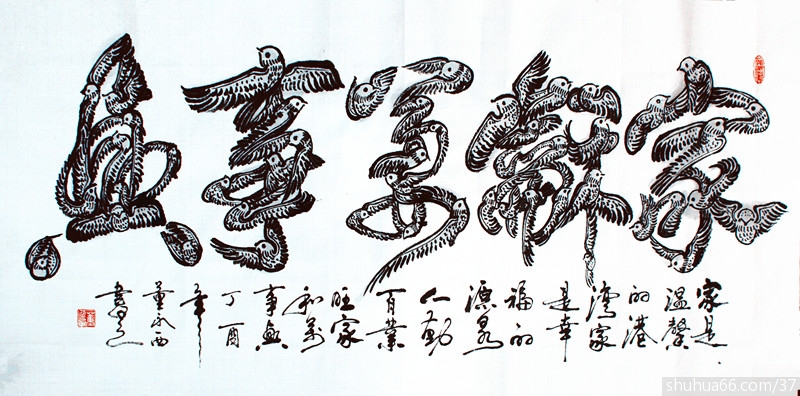 家龢萬事興
家是
温馨
的港
湾家
是幸
福的
源泉
人勤
百業
旺家
和萬
事興
丁酉
年
董永西
shuhua66.com/37